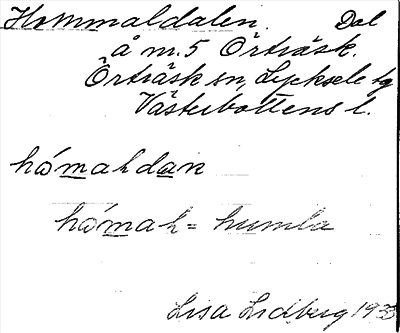 Hommaldalen. Dal
å m. 5 Örträsk.
Örträsk sn, Lycksele tg
Västerbottens l.
hómahdan
hómah = humla
Lisa Lidberg 193